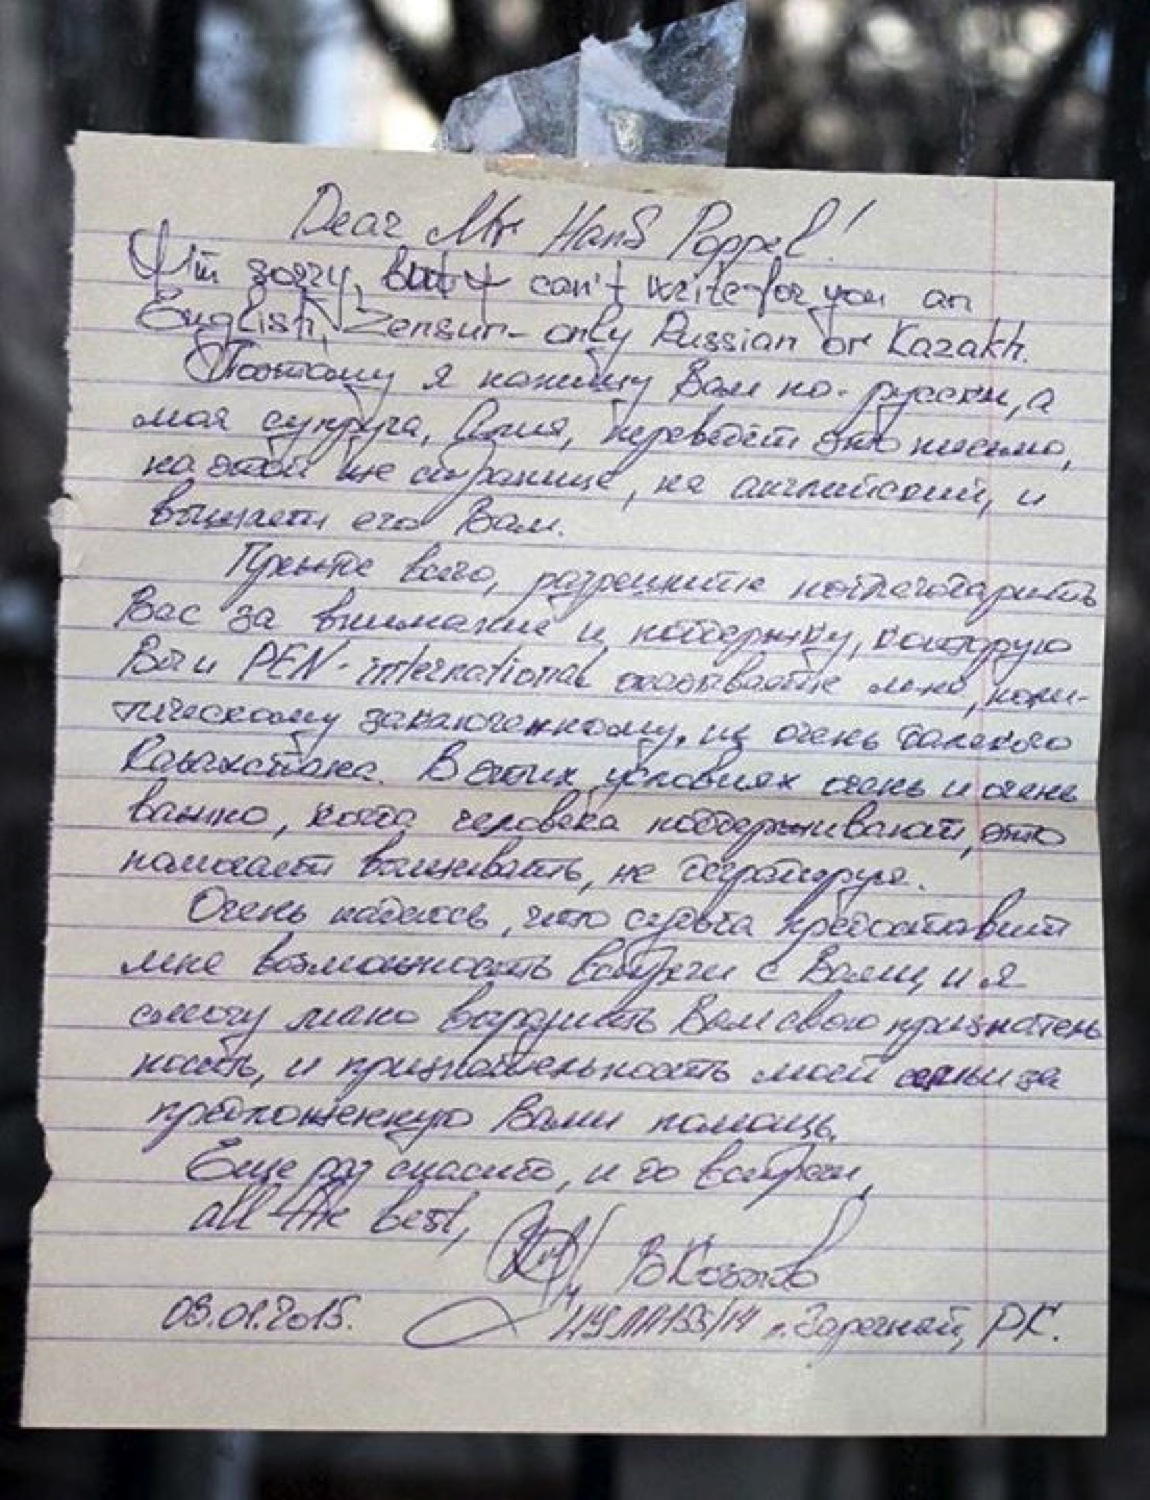 Dear Mr Hans Poppel!
I'm sorry, but I can't write for you an
English, Zensur - only Russian or Kazakh.
Поэтому я напишу Вам по-русски, а
моя супруга, Алия, переведёт это письмо,
на этой же странице, на английский, и
вышлет его Вам.
Прежде всего, разрешите поблагодарить
Вас за внимание и поддержку, которую
Вы и PEN-international оказываете мне, поли-
тическому заключенному, из очень далекого
Казахстана. В этих условиях очень и очень
важно, когда человека поддерживают, это
помогает выживать, не деградируя.
Очень надеюсь, что судьба предоставит
мне возможность встречи с Вами, и я
смогу лично выразить Вам свою признатель
ность, и признательность моей семьи за
предложенную Вами помощь.
Еще раз спасибо, и до встречи,
all the best,
В Козлов
03.01.2015.
п. Заречный, РК.